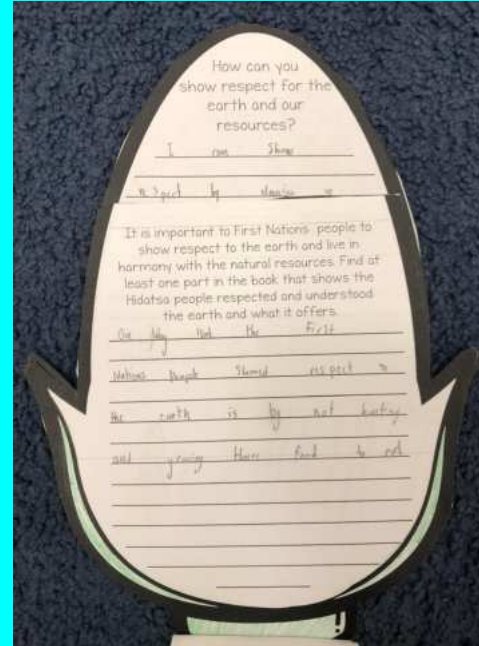 How can you
show respect for the
earth and our
resources?
I can Show
respect by
It is important to First Nations people to
show respect to the earth and live in
harmony with the natural resources. Find at
least one part in the book that shows the
Hidatsa people respected and understood
the earth and what it offers.
One Way that the First
Nations People Showed respect to
the earth is by not hunting
and growing food to eat